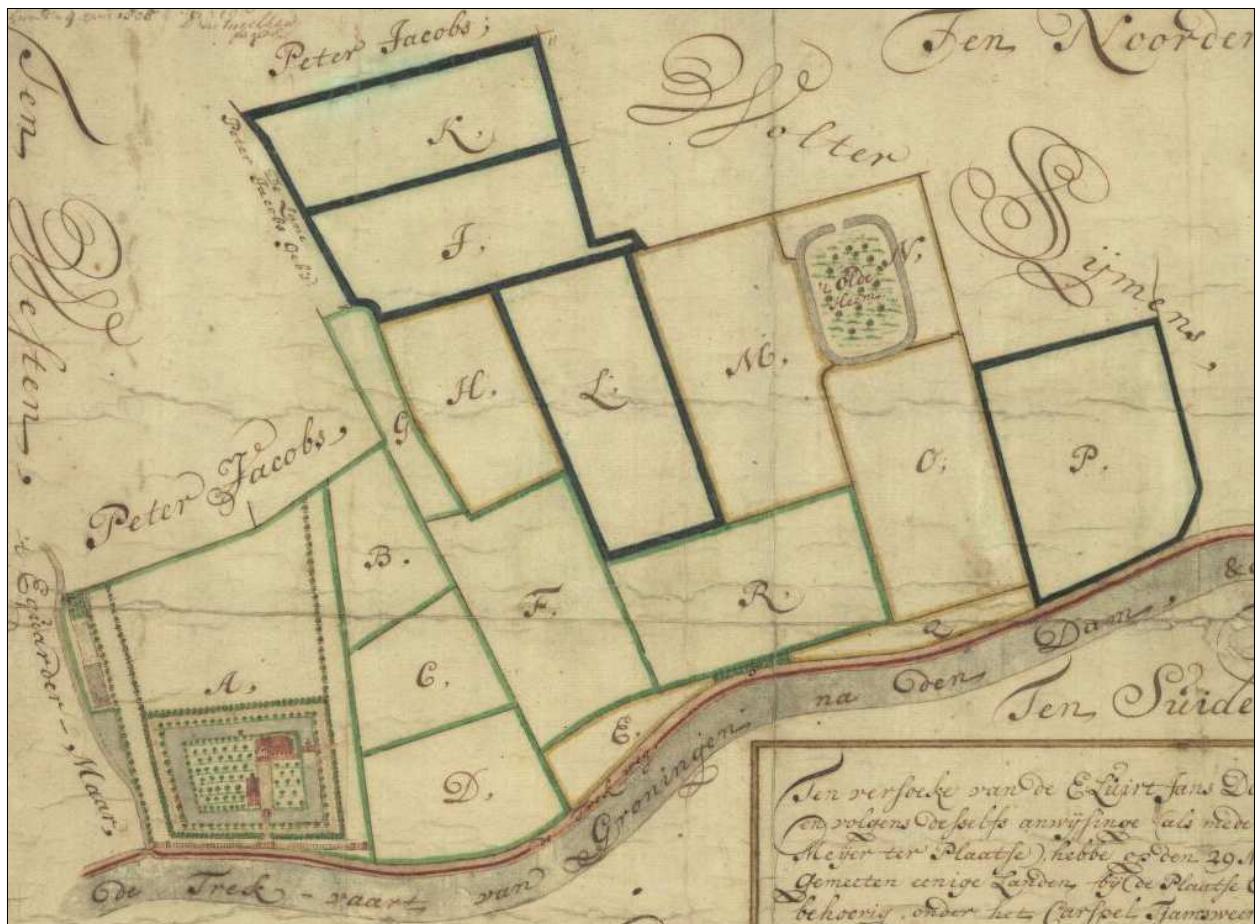 Peter Jacobs;
Ten Noorder
Wolter
Sijmens,
Ten Westen,
De
K.
J.
Peter Jacobs
N.
't Olde
M.
H.
L.
G
P.
O;
Peter Jacobs,
B.
F.
R.
A.
C.
E.
D.
Q
't Equarder-Maar,
Trek weg
de Treck-vaart van Groningen na den Dam,
Ten Suide
Ten versoeke van de E. Luirt Jans
en volgens desselfs anwijsinge (als mede
Meijer ter Plaatse), hebbe op den 29
Gemeeten eenige Landen, bij de Plaatse
behoorig, onder het Carspel